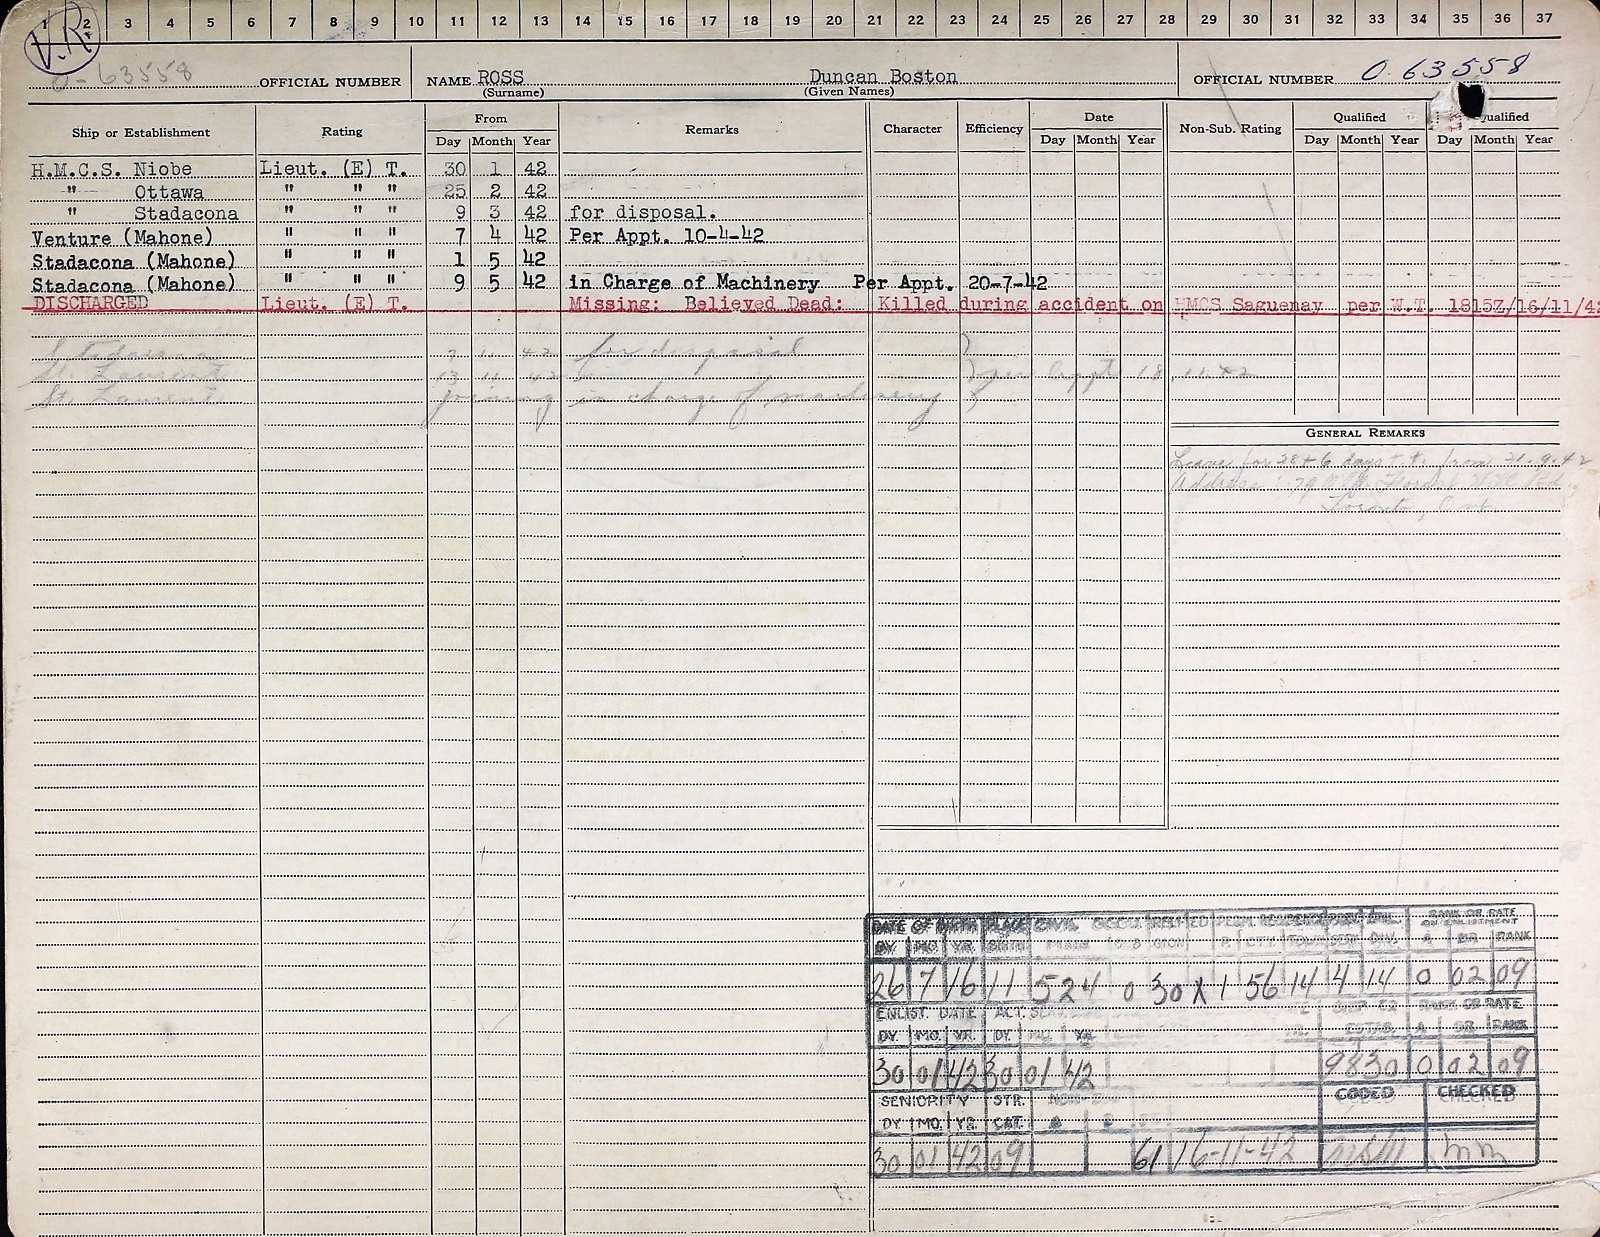 1 2 3 4 5 6 7 8 9 10 11 12 13 14 15 16 17 18 19 20 21 22 23 24 25 26 27 28 29 30 31 32 33 34 35 36 37
V.R.
0-63558 OFFICIAL NUMBER NAME ROSS Duncan Boston OFFICIAL NUMBER 0 63558
(Surname) (Given Names)
Ship or Establishment Rating From Remarks Character Efficiency Date Non-Sub. Rating Qualified Qualified
Day Month Year Day Month Year Day Month Year Day Month Year
H.M.C.S. Niobe Lieut. (E) T. 30 1 42
" Ottawa " " " 25 2 42
" Stadacona " " " 9 3 42 for disposal.
Venture (Mahone) " " " 7 4 42 Per Appt. 10-4-42
Stadacona (Mahone) " " " 1 5 42
Stadacona (Mahone) " " " 9 5 42 in Charge of Machinery Per Appt. 20-7-42
DISCHARGED Lieut. (E) T. Missing: Believed Dead: Killed during accident on HMCS Saguenay per W.T. 1815Z/16/11/42
Stadacona 42 for disposal
St. Laurent 13 11 42 per Appt 18.11.42
St. Laurent joining in charge of machinery
GENERAL REMARKS
Leave for 28+6 days t.t. from 21.9.42
Address: 79
Toronto, Ont.
DATE OF BIRTH PLACE CIVIL OCCU. RANK OR RATE
DY. MO. YR. BIRTH MAIN DIV. A BR RANK
26 7 16 11 524 0 30 X 1 56 14 4 14 0 02 09
ENLIST. DATE ACT. RANK OR RATE
DY. MO. YR. DY. MO. YR. A BR RANK
30 01 42 30 01 42 9830 0 02 09
SENIORITY STR. CODED CHECKED
DY MO. YR. CAT.
30 01 42 09 61 16-11-42 mm